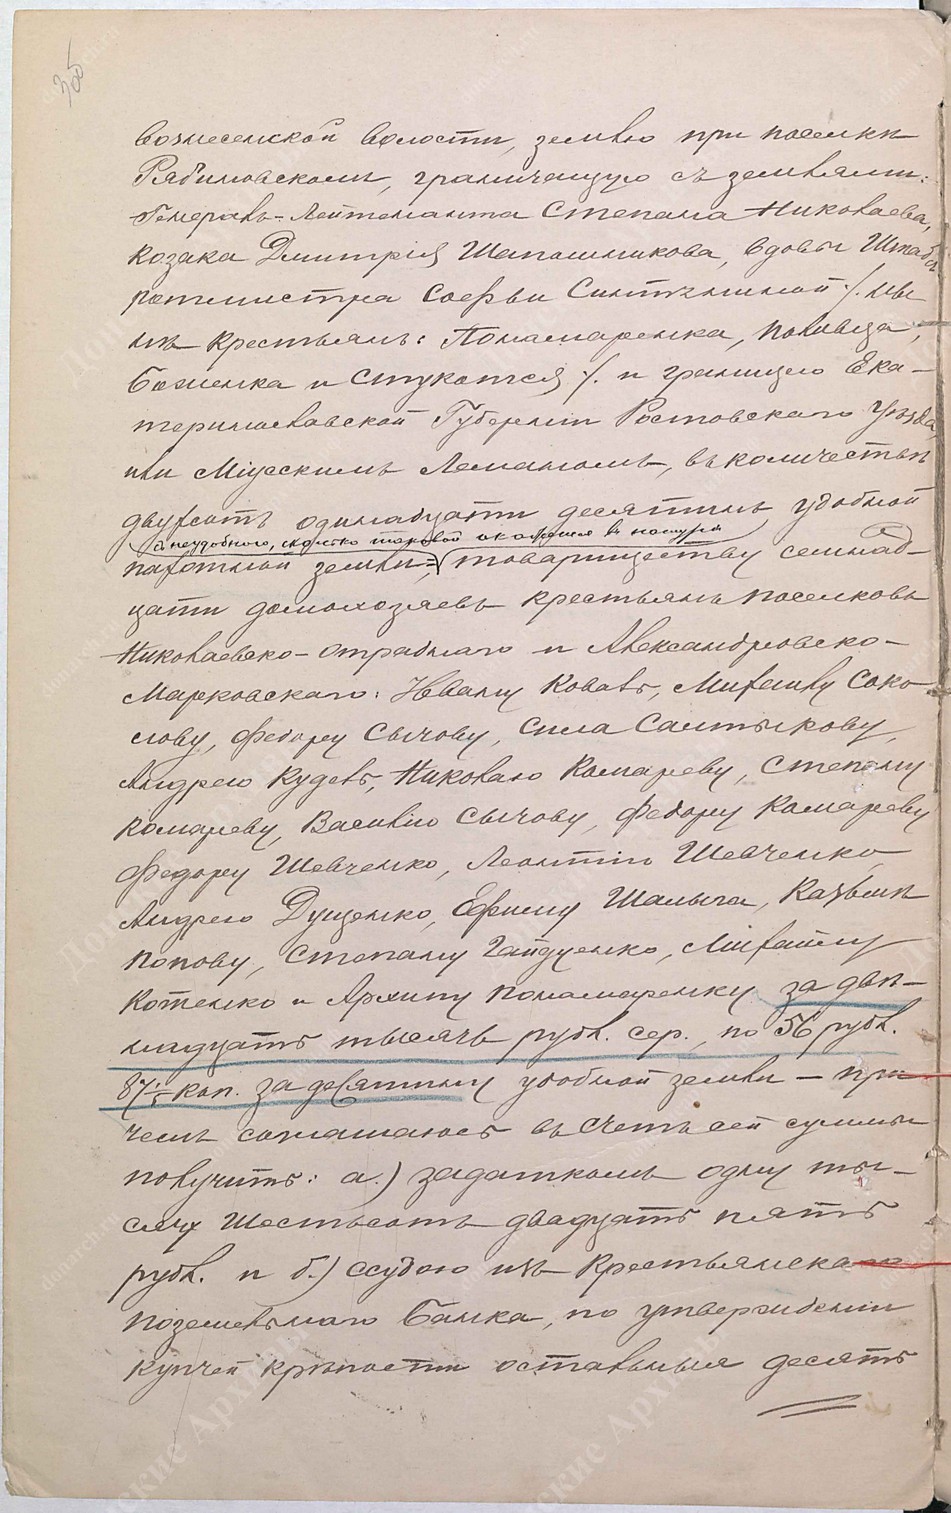 36
вознесенской волости, землю при поселки
Рябиновскомъ, граничащую съ землями:
Генералъ-Лейтенанта Степана Николаева,
козака Дмитрія Шапошникова, вдовы Штабъ
ротмистра Софьи
нѣ крестьянъ: Понамаренка, Поливца,
Боженка и Стукотся ./. и границею Ека-
теринославской Губерніи Ростовскаго Уѣзда,
или Міусскимъ Леманомъ, въ количествѣ
двухсотъ одинадцати десятинъ удобной
а неудобного, сколько таковой окажется въ натурѣ
пахотной земли, товариществу семнад-
цати домохозяевъ крестьянъ поселковъ
Николаевско-Отраднаго и Александровско-
Марковскаго: Ивану Коваль, Михаилу Соко-
лову, Федору Сычову, Сила Салтыкову,
Андрею Кудевъ, Николаю Комареву, Степану
Комареву, Василію Сычову, Федору Комареву
Федору Шевченко, Леонтію Шевченко,
Андрею Дущенко, Ефиму Шалыга, Казьмѣ
Попову, Степану Гайдуенко, Михаилу
Котенко и Архипу Понамаренку за двѣ-
надцать тысячъ рубл. сер., по 56 рубл.
87 1/5 коп. за десятину удобной земли – при
чемъ соглашаюсь въ счетъ сей суммы
получить: а.) задаткомъ одну ты-
сячу шестьсотъ двадцать пять
рубл. и б.) ссудою изъ Крестьянска
Поземельнаго Банка, по утвержденіи
купчей крѣпости остальныя десять